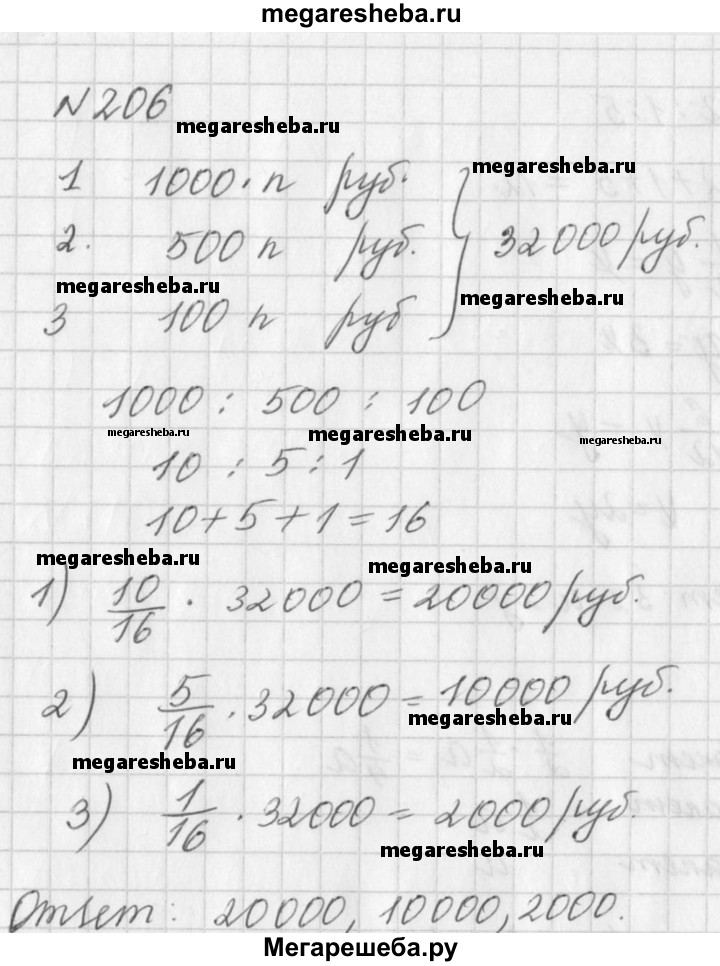 megaresheba.ru
№206
megaresheba.ru
1 1000·n руб.
megaresheba.ru
2. 500n руб.
32000 руб.
megaresheba.ru
megaresheba.ru
3 100n руб
1000 : 500 : 100
megaresheba.ru
megaresheba.ru
megaresheba.ru
10 : 5 : 1
10+5+1=16
megaresheba.ru
megaresheba.ru
1) 10/16 · 32000 = 20000 руб.
2) 5/16 · 32000 = 10000 руб.
megaresheba.ru
megaresheba.ru
3) 1/16 · 32000 = 2000 руб.
megaresheba.ru
Ответ: 20000, 10000, 2000.
Мегарешеба.ру